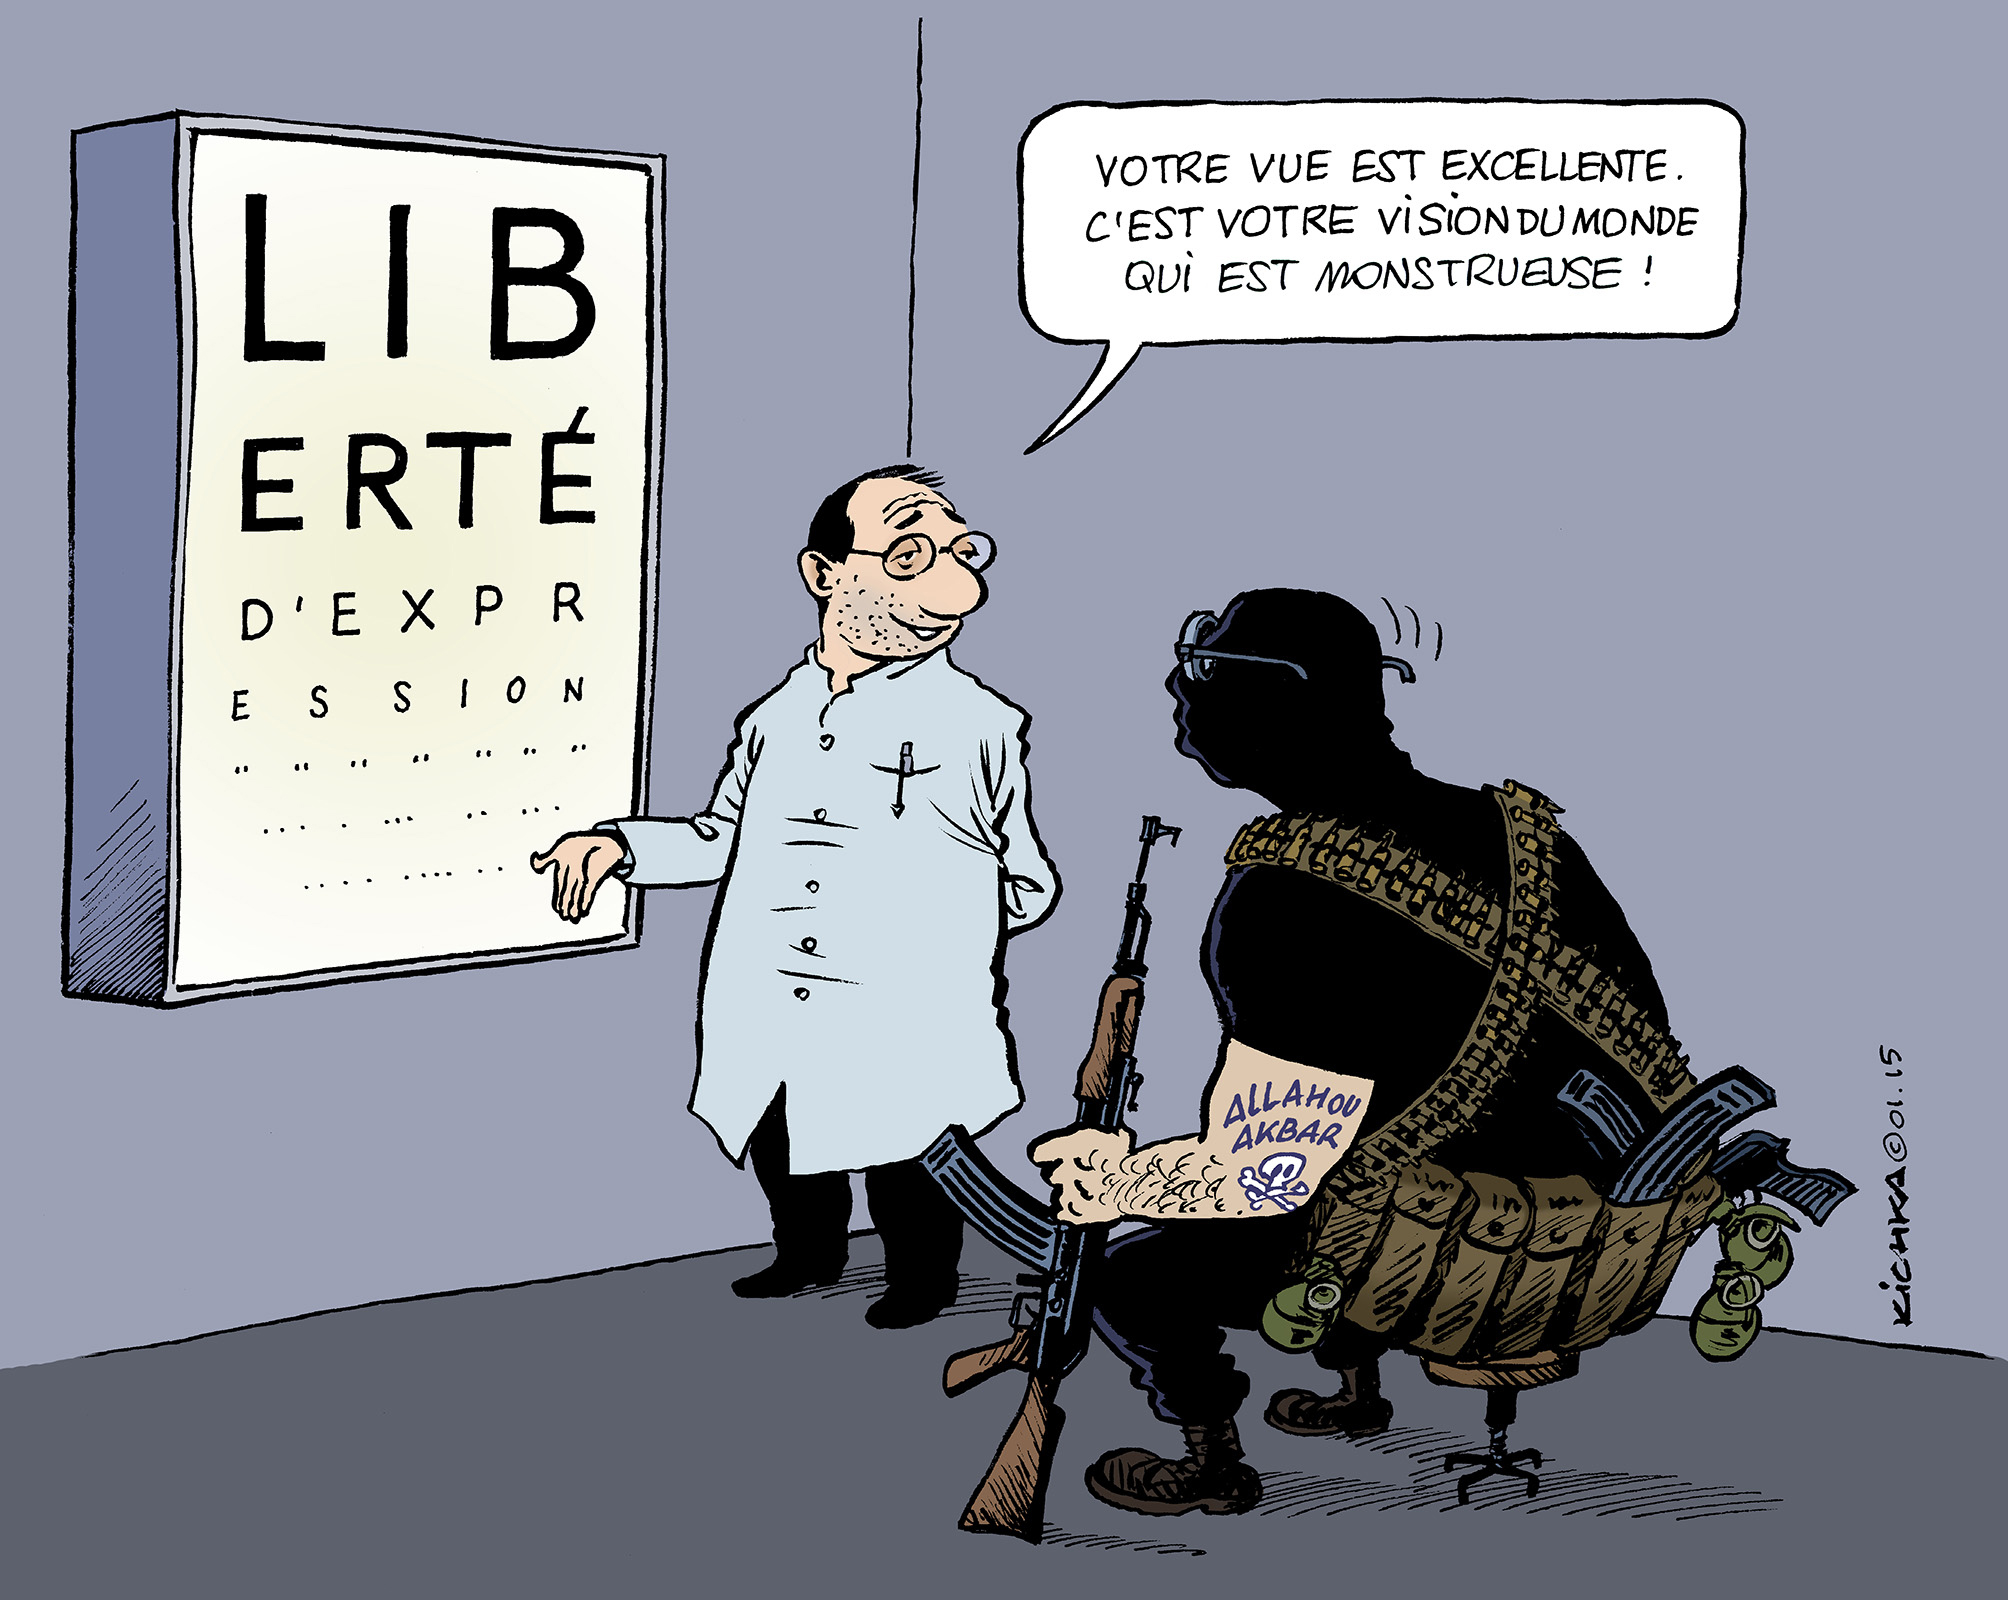 LIB
ERTÉ
D'EXPR
ESSION
VOTRE VUE EST EXCELLENTE.
C'EST VOTRE VISION DU MONDE
QUI EST MONSTRUEUSE !
ALLAHOU
AKBAR
KICHKA © 01.15